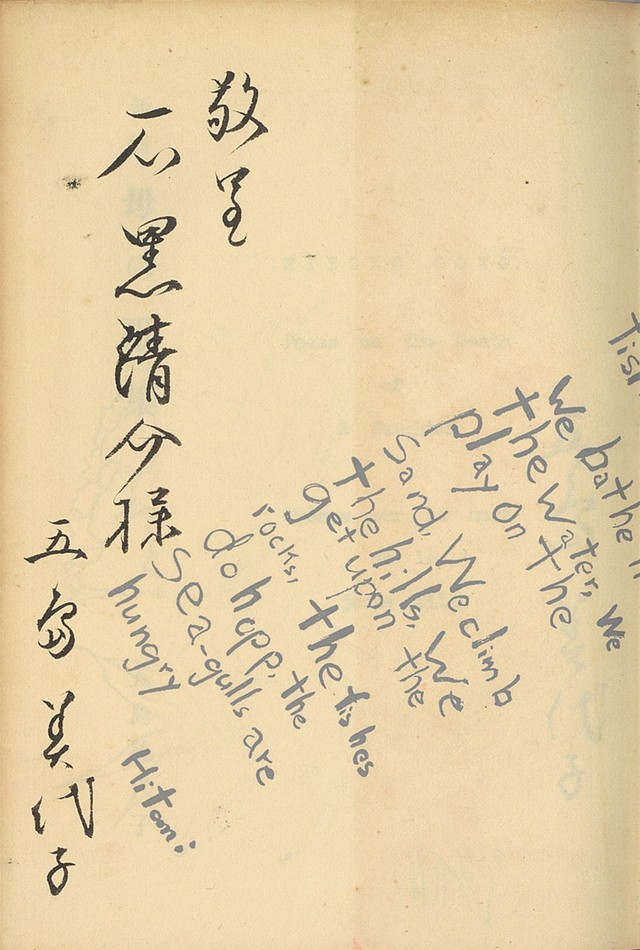 敬呈
石黒清介様
五島美代子
We bathe
the water, we
play on the
sand. We climb
the hills. We
get upon the
rocks, the fishes
do hopp, the
sea-gulls are
hungry
Hitomi